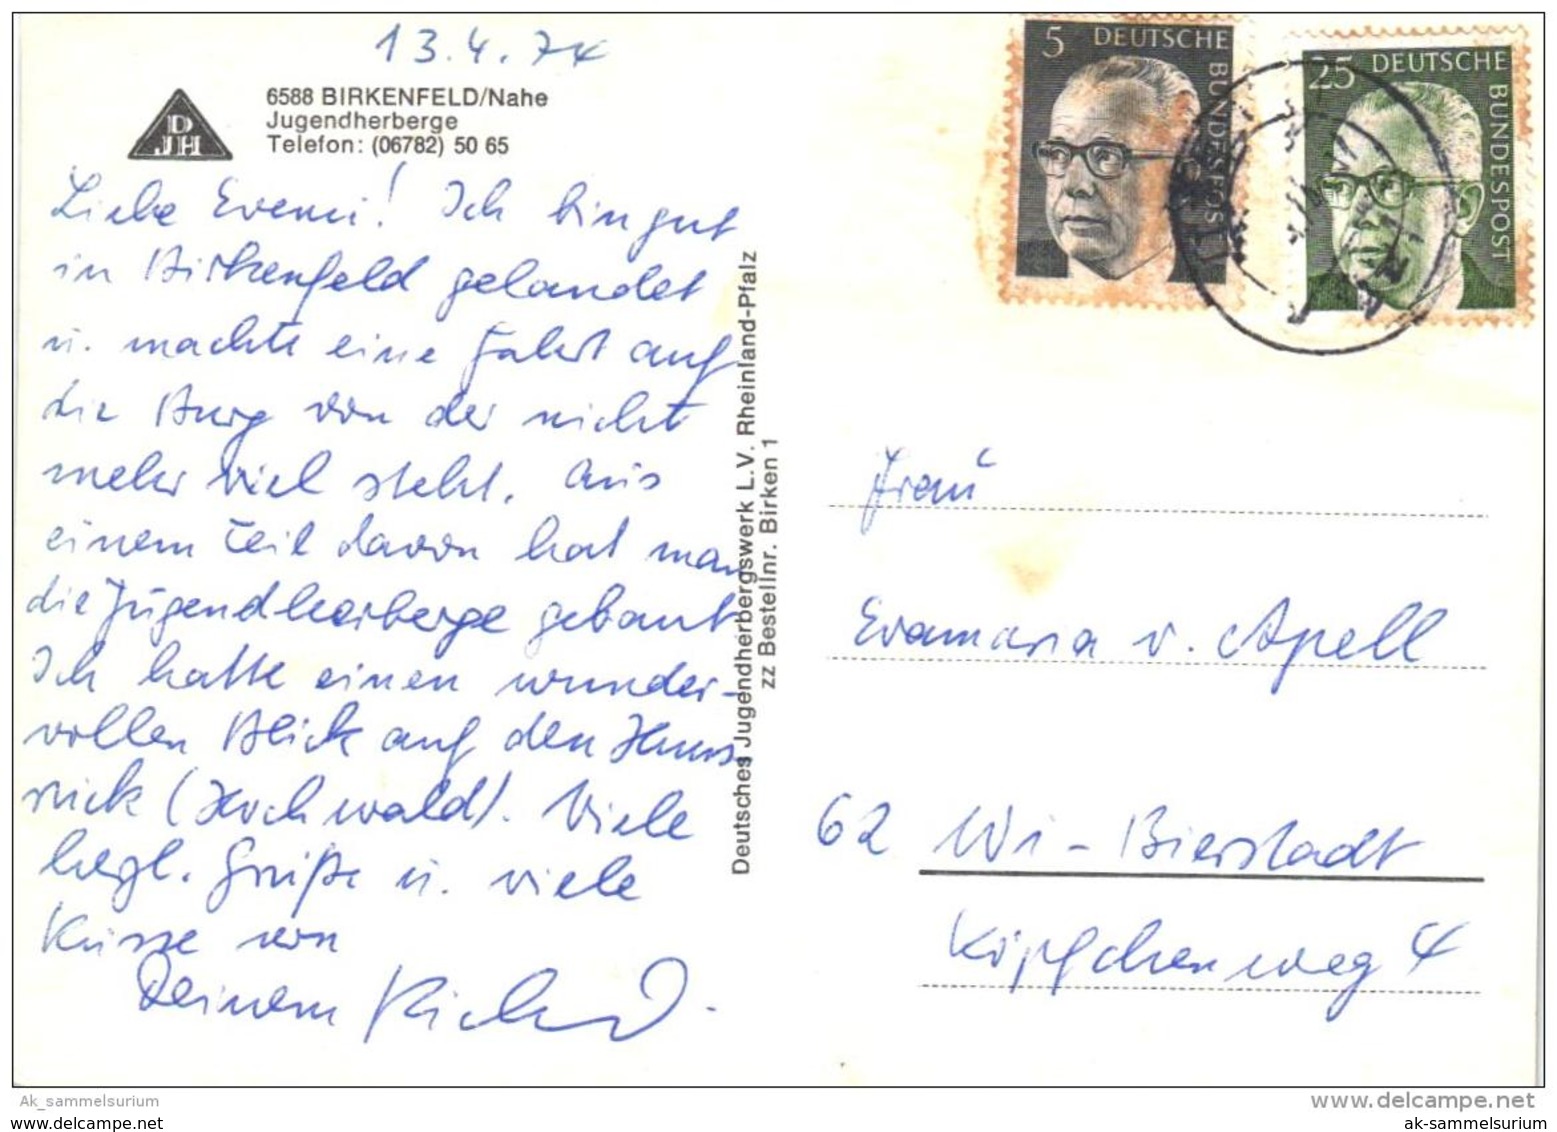 13.4.74
DJH
6588 BIRKENFELD/Nahe
Jugendherberge
Telefon: (06782) 50 65
Liebe Evemi! Ich bin gut
in Birkenfeld gelandet
u. machte eine Fahrt auf
die Burg von der nicht
mehr viel steht. Aus
einem Teil davon hat man
die Jugendherberge gebaut
Ich hatte einen wunder-
vollen Blick auf den Huns-
rück (Hochwald). Viele
herzl. Grüße u. viele
Küsse von
Deinem Richard.
Deutsches Jugendherbergswerk L.V. Rheinland-Pfalz
zz Bestellnr. Birken 1
5 DEUTSCHE BUNDESPOST
25 DEUTSCHE BUNDESPOST
Frau
Evamaria v. Apell
62 Wi-Bierstadt
Köpfchenweg 4
Ak_sammelsurium
www.delcampe.net
www.delcampe.net
ak-sammelsurium